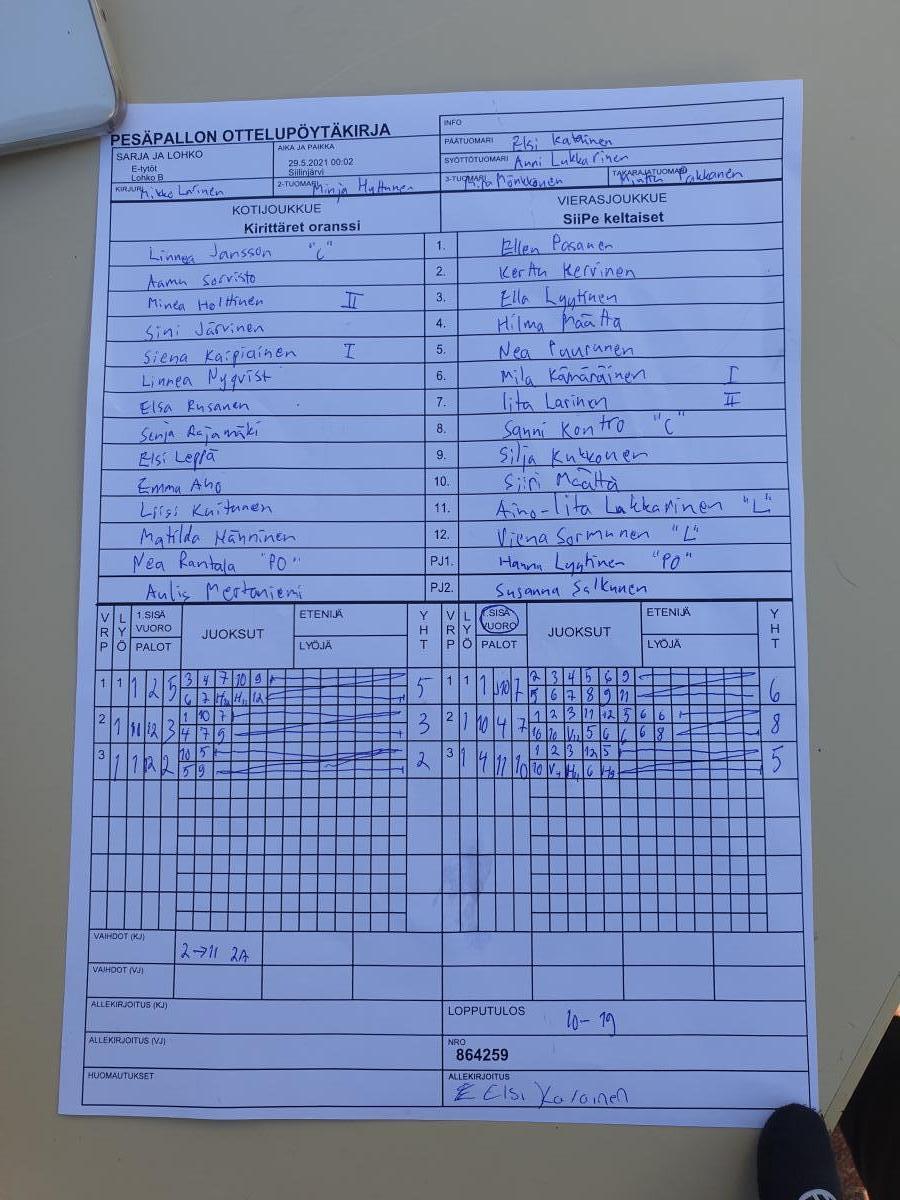 PESÄPALLON OTTELUPÖYTÄKIRJA
INFO
SARJA JA LOHKO
E-tytöt
Lohko B
AIKA JA PAIKKA
29.5.2021 00:02
Siilinjärvi
PÄÄTUOMARI Elsi
SYÖTTÖTUOMARI Anni Lukkarinen
KIRJURI Mikko Larinen
2-TUOMARI Minja Hyttinen
3-TUOMARI Miia Mönkkönen
TAKARAJATUOMARI Pakkanen
KOTIJOUKKUE
Kirittäret oranssi
VIERASJOUKKUE
SiiPe keltaiset
Linnea Jansson "C" 1. Ellen Pasanen
Aamu Sorvisto 2. Kerttu Kervinen
Minea Holttinen II 3. Ella Lyytinen
Sini Järvinen 4. Hilma Määttä
Siena Karpiainen I 5. Nea Puurunen
Linnea Nyqvist 6. Mila Kämäräinen I
Elsa Rusanen 7. Iita Larinen II
Senja Rajamäki 8. Sanni Kontro "C"
Elsi Leppä 9. Silja Kukkonen
Emma Aho 10. Siiri Määttä
Liisi Kuitunen 11. Aino-Iita Lukkarinen "L"
Matilda Hänninen 12. Viena Sormunen "L"
Nea Rantala "PO" PJ1. Hannu Lyytinen "PO"
Aulis Mertaniemi PJ2. Susanna Salkunen
VRP LYÖ 1.SISÄ VUORO PALOT JUOKSUT ETENIJÄ LYÖJÄ YHT VRP LYÖ 1.SISÄ VUORO PALOT JUOKSUT ETENIJÄ LYÖJÄ YHT
1 1 1 2 5 3 4 7 10 9 5 1 1 1 7 2 3 4 5 6 9 6
6 7 12 5 6 7 8 9 11
2 1 11 12 3 1 10 7 3 2 1 10 4 7 1 2 3 11 12 5 6 6 8
4 7 9 10 10 5 6 6 6 8
3 1 1 12 2 10 5 2 3 1 4 11 10 1 2 3 12 5 5
5 9 10 6
VAIHDOT (KJ) 2→11 2A
VAIHDOT (VJ)
ALLEKIRJOITUS (KJ)
LOPPUTULOS 10-19
ALLEKIRJOITUS (VJ)
NRO
864259
HUOMAUTUKSET
ALLEKIRJOITUS
Elsi